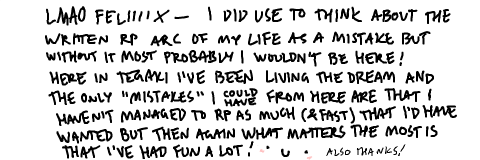 LMAO FELIIIIX — I DID USE TO THINK ABOUT THE
WRITTEN RP ARC OF MY LIFE AS A MISTAKE BUT
WITHOUT IT MOST PROBABLY I WOULDN'T BE HERE!
HERE IN TEGAKI I'VE BEEN LIVING THE DREAM AND
THE ONLY "MISTAKES" I COULD HAVE FROM HERE ARE THAT I
HAVEN'T MANAGED TO RP AS MUCH (& FAST) THAT I'D HAVE
WANTED BUT THEN AGAIN WHAT MATTERS THE MOST IS
THAT I'VE HAD FUN A LOT! ALSO THANKS!